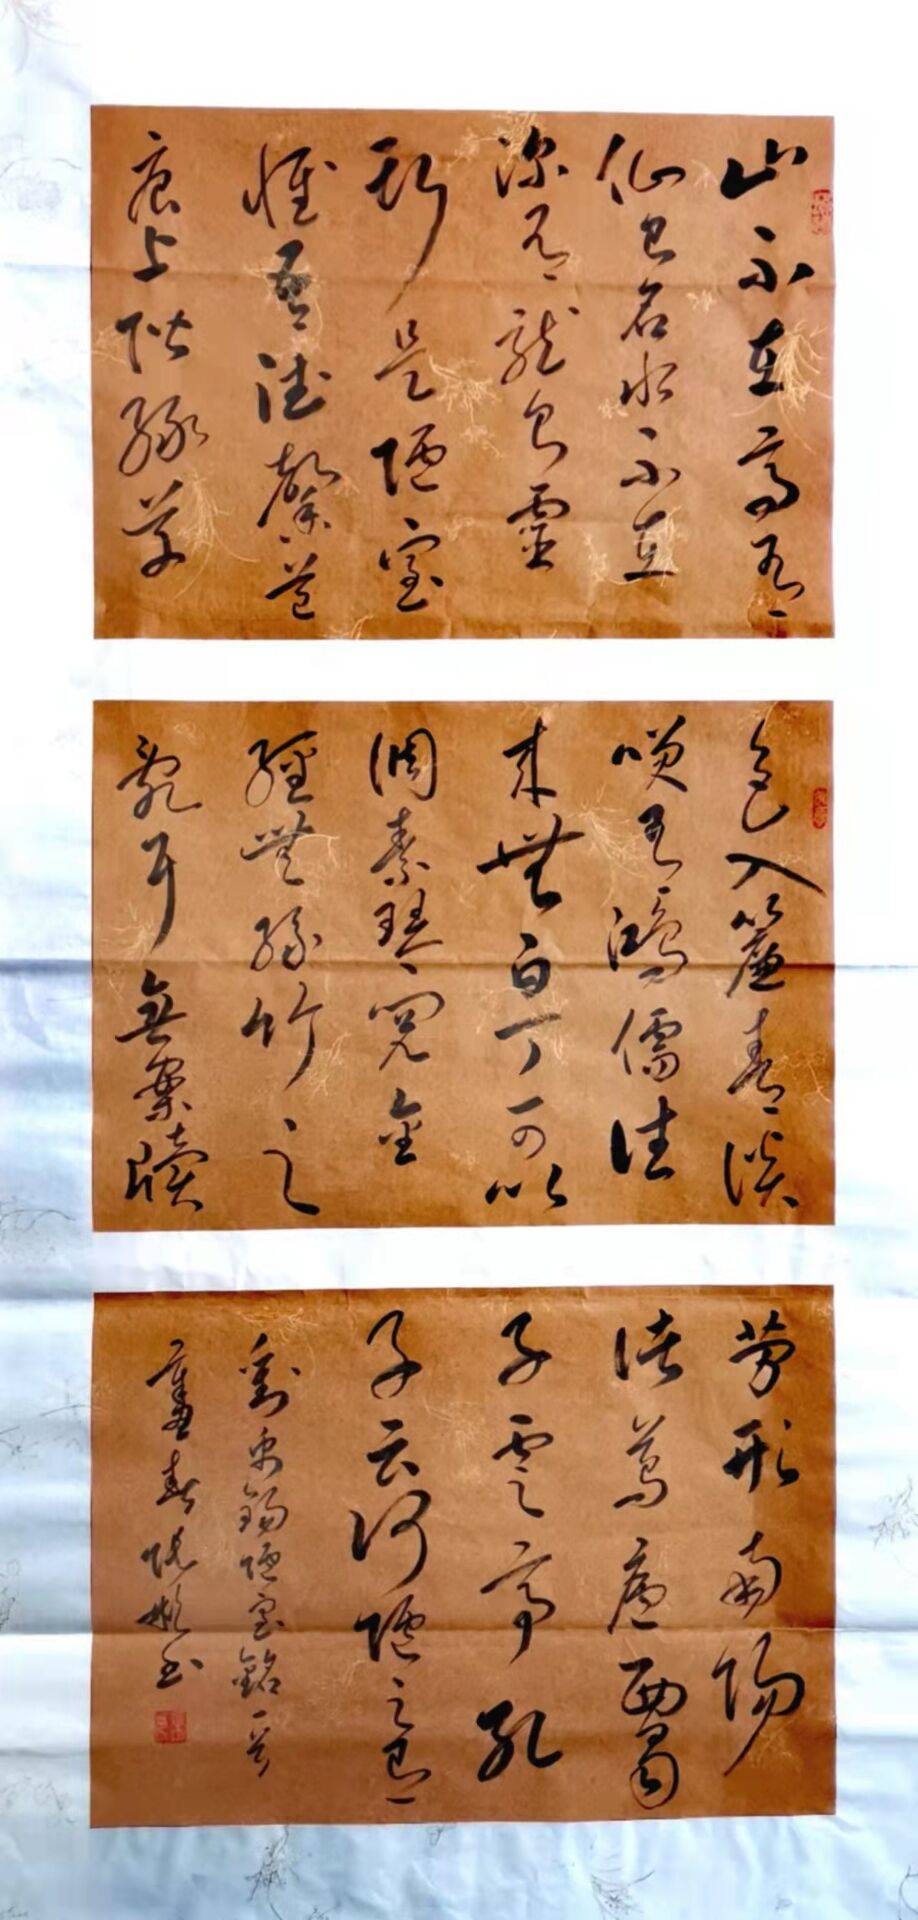 山不在高有
仙則名水不在
深有龍則靈
斯是陋室
惟吾德馨苔
痕上階綠草
色入簾青談
笑有鴻儒往
來無白丁可以
調素琴閱金
經無絲竹之
亂耳無案牘
勞形南陽
諸葛廬西蜀
子雲亭孔
子云何陋之有
劉禹錫陋室銘一首